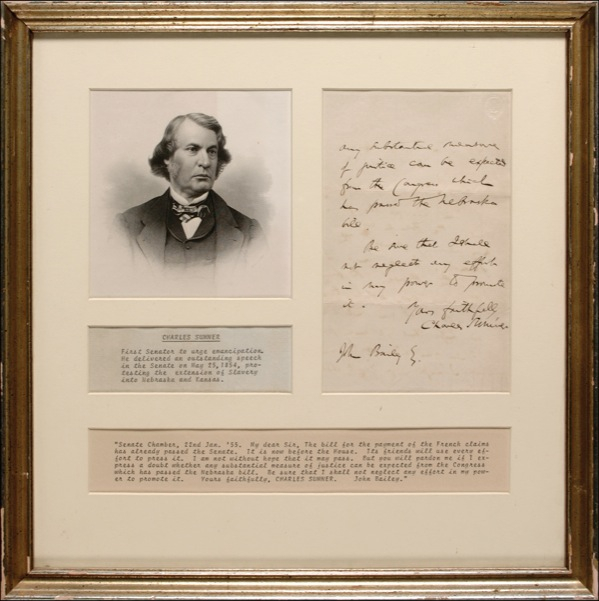 any substantial measure
of justice can be expected
from the Congress which
has passed the Nebraska
bill
Be sure that I shall
not neglect any effort
in my power to promote
it. Yours faithfully
Charles Sumner
John Bailey
CHARLES SUMNER
First Senator to urge emancipation.
He delivered an outstanding speech
in the Senate on May 25, 1854, pro-
testing the extension of Slavery
into Nebraska and Kansas.
"Senate Chamber, 22nd Jan. '55. My dear Sir, The bill for the payment of the French claims
has already passed the Senate. It is now before the House. Its friends will use every ef-
fort to press it. I am not without hope that it may pass. But you will pardon me if I ex-
press a doubt whether any substantial measure of justice can be expected from the Compress
which has passed the Nebraska bill. Be sure that I shall not neglect any effort in my pow-
er to promote it. Yours faithfully, CHARLES SUMNER. John Bailey."